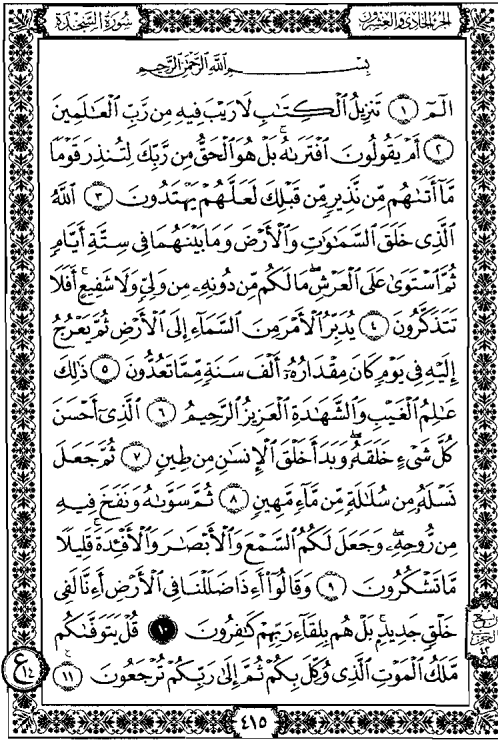 الجزء الحادي والعشرون
سورة السجدة
بِسْمِ ٱللَّهِ ٱلرَّحْمَٰنِ ٱلرَّحِيمِ
الٓمٓ ١ تَنزِيلُ ٱلْكِتَٰبِ لَا رَيْبَ فِيهِ مِن رَّبِّ ٱلْعَٰلَمِينَ
٢ أَمْ يَقُولُونَ ٱفْتَرَىٰهُ ۚ بَلْ هُوَ ٱلْحَقُّ مِن رَّبِّكَ لِتُنذِرَ قَوْمًا
مَّآ أَتَىٰهُم مِّن نَّذِيرٍ مِّن قَبْلِكَ لَعَلَّهُمْ يَهْتَدُونَ ٣ ٱللَّهُ
ٱلَّذِى خَلَقَ ٱلسَّمَٰوَٰتِ وَٱلْأَرْضَ وَمَا بَيْنَهُمَا فِى سِتَّةِ أَيَّامٍ
ثُمَّ ٱسْتَوَىٰ عَلَى ٱلْعَرْشِ ۖ مَا لَكُم مِّن دُونِهِۦ مِن وَلِىٍّ وَلَا شَفِيعٍ ۚ أَفَلَا
تَتَذَكَّرُونَ ٤ يُدَبِّرُ ٱلْأَمْرَ مِنَ ٱلسَّمَآءِ إِلَى ٱلْأَرْضِ ثُمَّ يَعْرُجُ
إِلَيْهِ فِى يَوْمٍ كَانَ مِقْدَارُهُۥٓ أَلْفَ سَنَةٍ مِّمَّا تَعُدُّونَ ٥ ذَٰلِكَ
عَٰلِمُ ٱلْغَيْبِ وَٱلشَّهَٰدَةِ ٱلْعَزِيزُ ٱلرَّحِيمُ ٦ ٱلَّذِىٓ أَحْسَنَ
كُلَّ شَىْءٍ خَلَقَهُۥ ۖ وَبَدَأَ خَلْقَ ٱلْإِنسَٰنِ مِن طِينٍ ٧ ثُمَّ جَعَلَ
نَسْلَهُۥ مِن سُلَٰلَةٍ مِّن مَّآءٍ مَّهِينٍ ٨ ثُمَّ سَوَّىٰهُ وَنَفَخَ فِيهِ
مِن رُّوحِهِۦ ۖ وَجَعَلَ لَكُمُ ٱلسَّمْعَ وَٱلْأَبْصَٰرَ وَٱلْأَفْـِٔدَةَ ۚ قَلِيلًا
مَّا تَشْكُرُونَ ٩ وَقَالُوٓا۟ أَءِذَا ضَلَلْنَا فِى ٱلْأَرْضِ أَءِنَّا لَفِى
خَلْقٍ جَدِيدٍۭ ۚ بَلْ هُم بِلِقَآءِ رَبِّهِمْ كَٰفِرُونَ ١٠ قُلْ يَتَوَفَّىٰكُم
مَّلَكُ ٱلْمَوْتِ ٱلَّذِى وُكِّلَ بِكُمْ ثُمَّ إِلَىٰ رَبِّكُمْ تُرْجَعُونَ ١١
ع ١٤
٤١٥